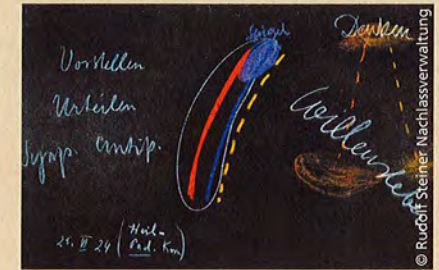 Vorstellen
Urteilen
Symp. Antip.
Spiegel
Denken
Willensleben
25. VI 24 (Heil-
Päd. Kurs)
© Rudolf Steiner Nachlassverwaltung